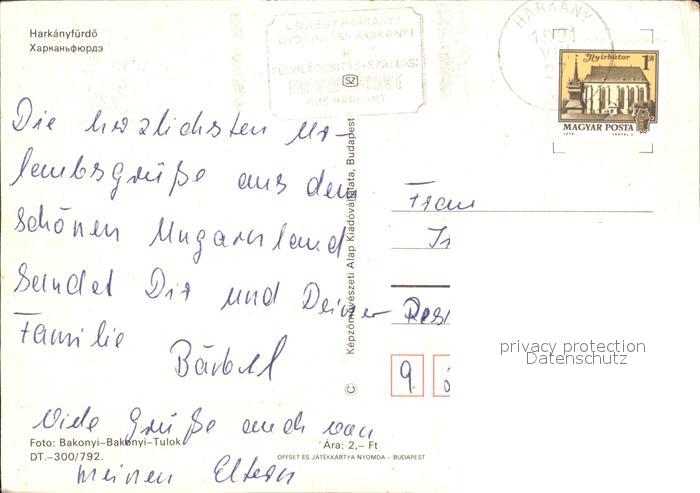 Harkányfürdő
Харканьфюрдэ
ÜDÜLÉSZ HARKÁNY!
GYÓGYULÁSZ HARKÁNY!
FELVILÁGOSÍTÁS-SZÁLLÁS:
HARKÁNY
1991
VII
Nyírbátor
1 Ft
MAGYAR POSTA
SZ
Die herzlichsten Ur-
laubsgrüße aus dem
schönen Ungarnland
sendet Dir und Deiner
Familie
Bärbel
Viele Grüße auch von
meinen Eltern
Frau
9
Képzőművészeti Alap Kiadóvállalata, Budapest
©
Foto: Bakonyi–Bakonyi–Tulok
DT.–300/792.
Ára: 2,– Ft
OFFSET ÉS JÁTÉKKÁRTYA NYOMDA – BUDAPEST
privacy protection
Datenschutz